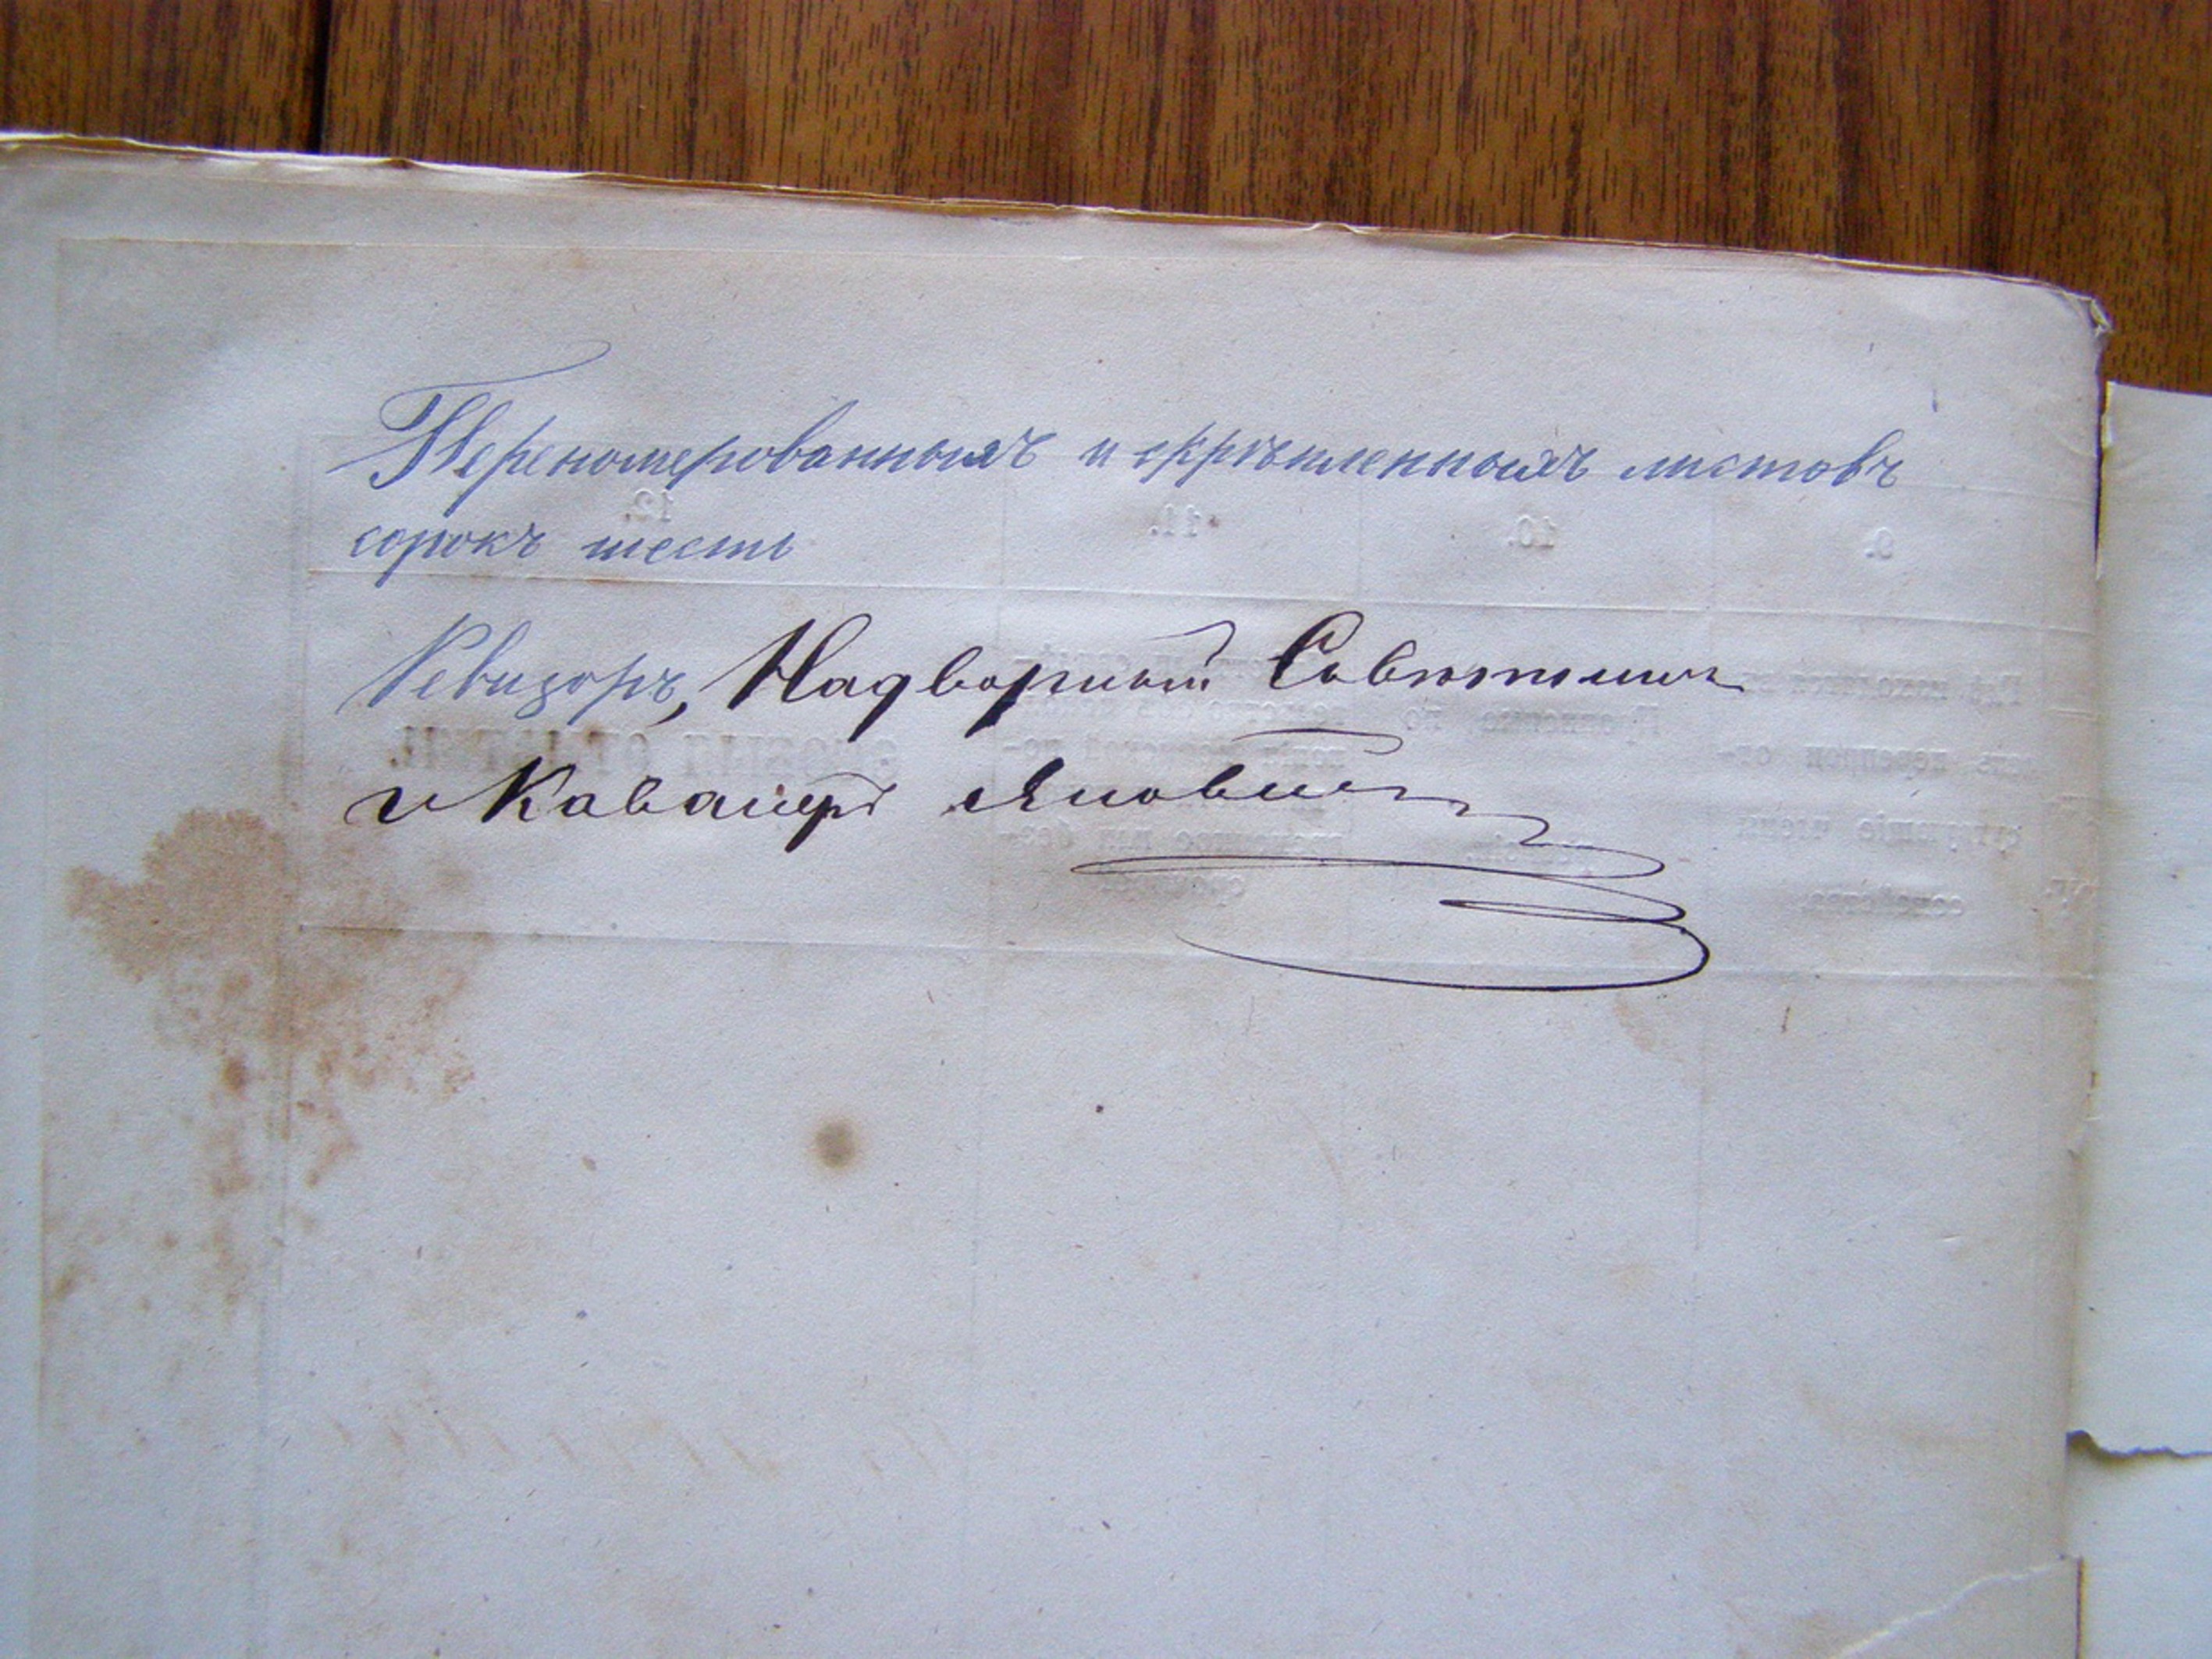 Перенумерованныхъ и скрѣпленныхъ листовъ
сорокъ шесть
Ревизоръ, Надворный Совѣтникъ
и Кавалеръ Яновскій